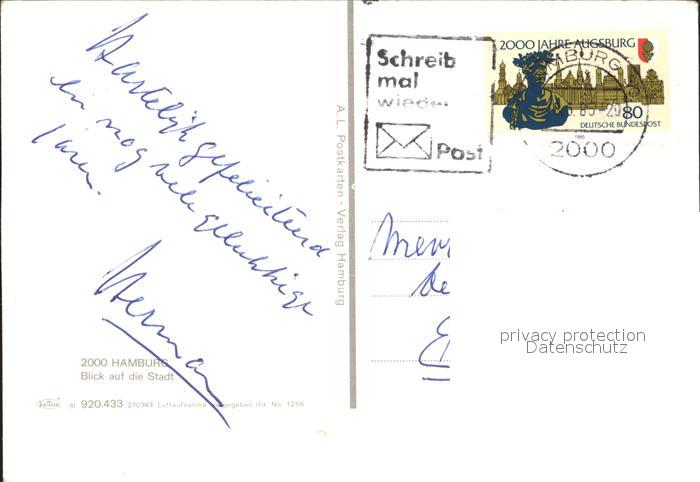 Hartelijk gefeliciteerd
en nog vele gelukkige
jaren.
Herman
2000 HAMBURG
Blick auf die Stadt
31 920.433 270343 Luftaufnahme freigegeben lfd. No. 1256
A.L. Postkarten - Verlag Hamburg
Schreib
mal
wieder
Post
2000 JAHRE AUGSBURG
80
DEUTSCHE BUNDESPOST
1985
HAMBURG
2000
privacy protection
Datenschutz